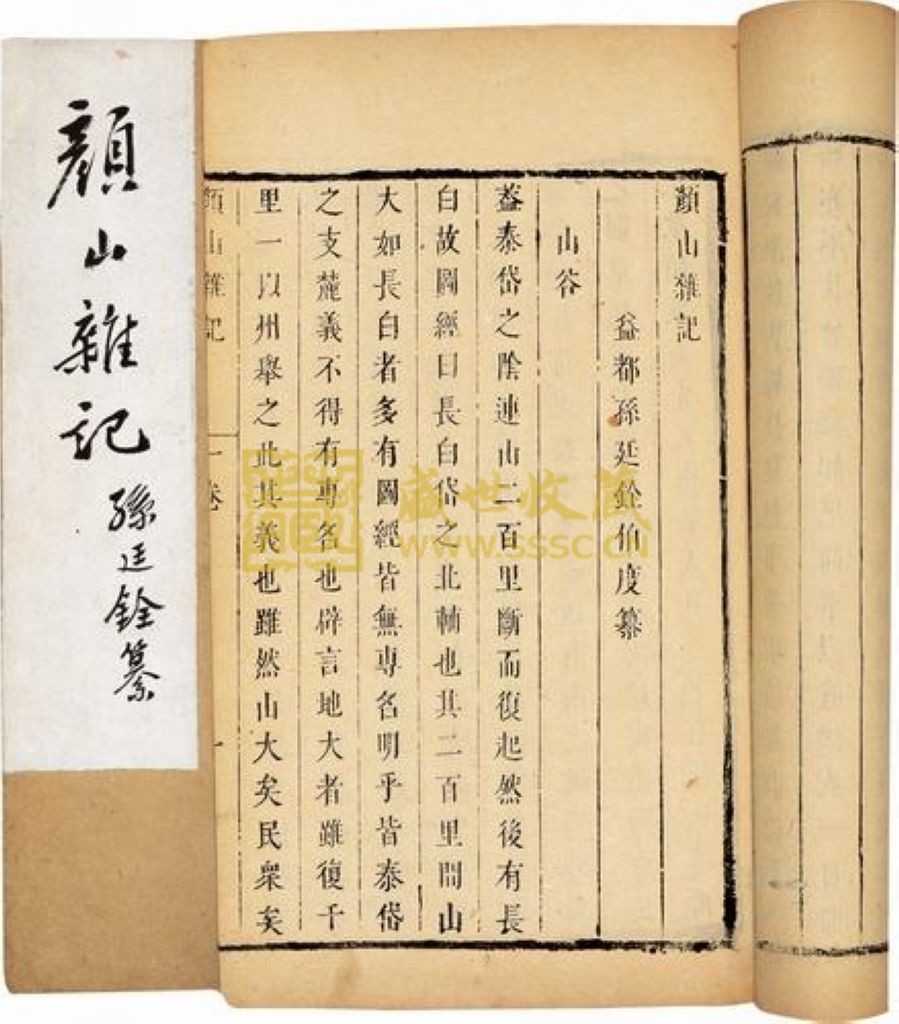 顏山雜記
孫廷銓纂
顏山雜記
益都孫廷銓伯度纂
山谷
蓋泰岱之陰連山二百里斷而復起然後有長
白故圖經曰長白岱之北輔也其二百里間山
大如長白者多有圖經皆無專名明乎皆泰岱
之支麓義不得有專名也辟言地大者雖復千
里一以州舉之此其義也雖然山大矣民衆矣
顏山雜記
卷一
一
盛世收藏
www.sssc.cn